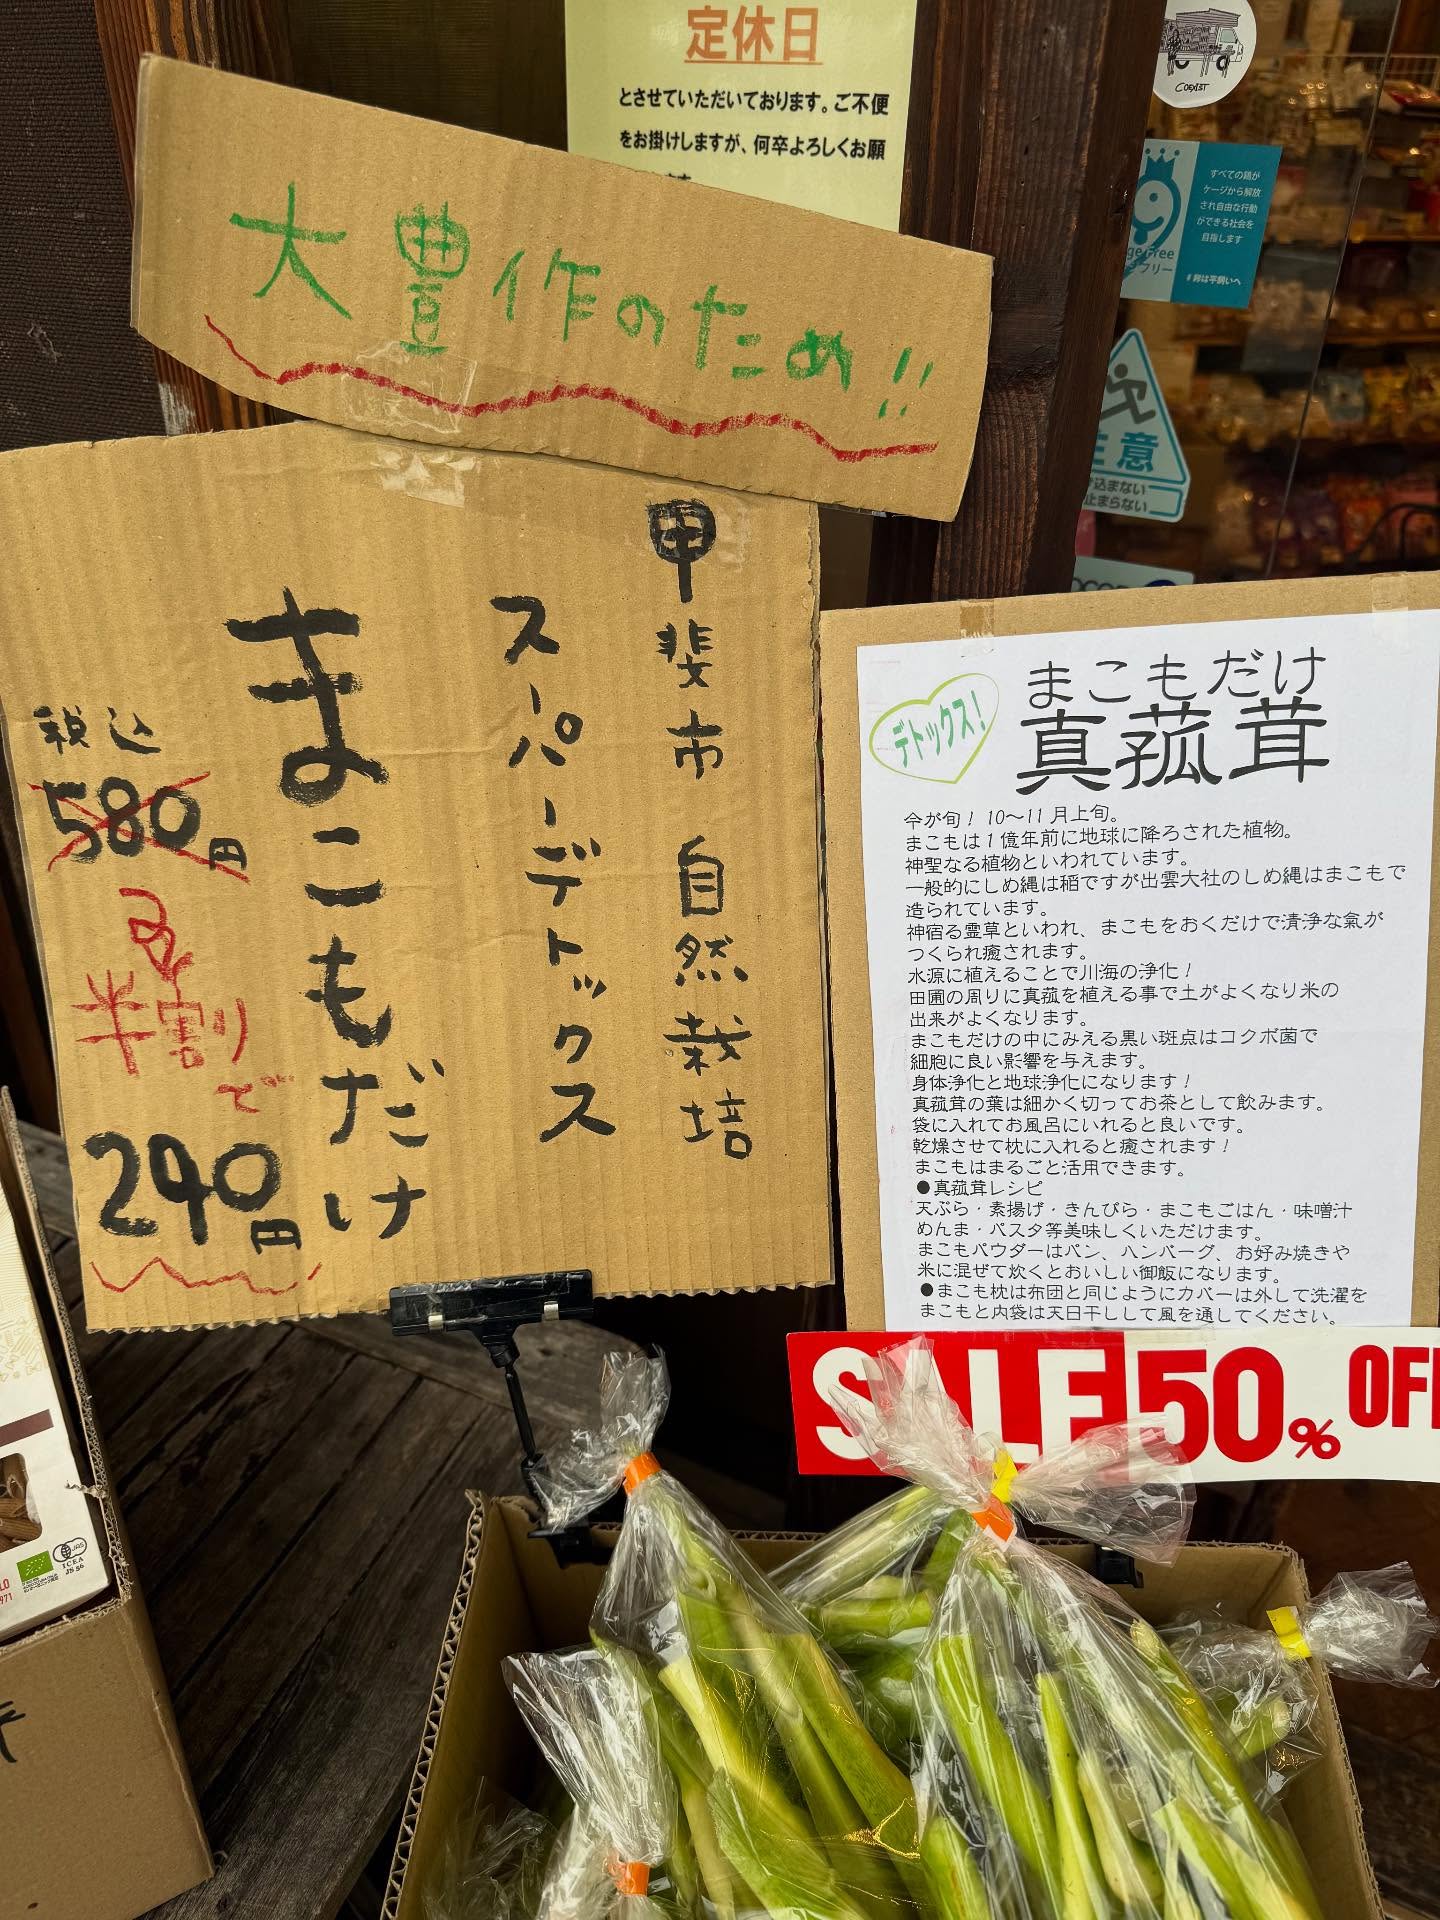 定休日
とさせていただいております。ご不便
をお掛けしますが、何卒よろしくお願
COEXIST
すべての鶏が
ケージから解放
され自由な行動
ができる社会を
目指します
#卵は平飼いへ
大豊作のため!!
意
込まない
止まらない
甲斐市 自然栽培
スーパーデトックス
まこもだけ
税込
580円
半割で
290円
デトックス!
まこもだけ
真菰茸
今が旬! 10〜11月上旬。
まこもは1億年前に地球に降ろされた植物。
神聖なる植物といわれています。
一般的にしめ縄は稲ですが出雲大社のしめ縄はまこもで
造られています。
神宿る霊草といわれ、まこもをおくだけで清浄な氣が
つくられ癒されます。
水源に植えることで川海の浄化!
田圃の周りに真菰を植える事で土がよくなり米の
出来がよくなります。
まこもだけの中にみえる黒い斑点はコクボ菌で
細胞に良い影響を与えます。
身体浄化と地球浄化になります!
真菰茸の葉は細かく切ってお茶として飲みます。
袋に入れてお風呂にいれると良いです。
乾燥させて枕に入れると癒されます!
まこもはまるごと活用できます。
●真菰茸レシピ
天ぷら・素揚げ・きんぴら・まこもごはん・味噌汁
めんま・パスタ等美味しくいただけます。
まこもパウダーはパン、ハンバーグ、お好み焼きや
米に混ぜて炊くとおいしい御飯になります。
●まこも枕は布団と同じようにカバーは外して洗濯を
まこもと内袋は天日干しして風を通してください。
SALE 50% OFF